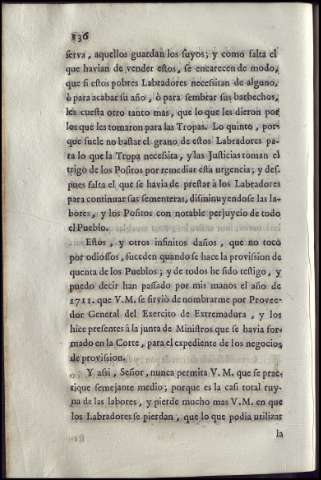 836
serva, aquellos guardan los suyos; y como falta el
que havian de vender estos, se encarecen de modo,
que si estos pobres Labradores necessitan de alguno,
ò para acabar su año, ò para sembrar sus barbechos,
les cuesta otro tanto mas, que lo que les dieron por
los que les tomaron para las Tropas. Lo quinto, por-
que suele no bastar el grano de estos Labradores pa-
ra lo que la Tropa necessita, y las Justicias toman el
trigo de los Positos por remediar esta urgencia; y des-
pues falta el que se havia de prestar à los Labradores
para continuar sus sementeras, disminuyendose las la-
bores, y los Positos con notable perjuycio de todo
el Pueblo.
Estos, y otros infinitos daños, que no toco
por odiosos, suceden quando se hace la provision de
quenta de los Pueblos; y de todos he sido testigo, y
puedo decir han passado por mis manos el año de
1711. que V.M. se sirviò de nombrarme por Provee-
dor General del Exercito de Extremadura, y los
hice presentes à la junta de Ministros que se havia for-
mado en la Corte, para el expediente de los negocios
de provission.
Y assi, Señor, nunca permita V.M. que se prac-
tique semejante medio; porque es la casi total ruy-
na de las labores, y pierde mucho mas V.M. en que
los Labradores se pierdan, que lo que podia utilizar
la